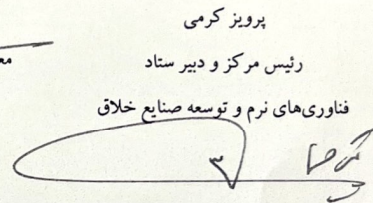 پرویز کرمی
رئیس مرکز و دبیر ستاد
فناوری‌های نرم و توسعه صنایع خلاق